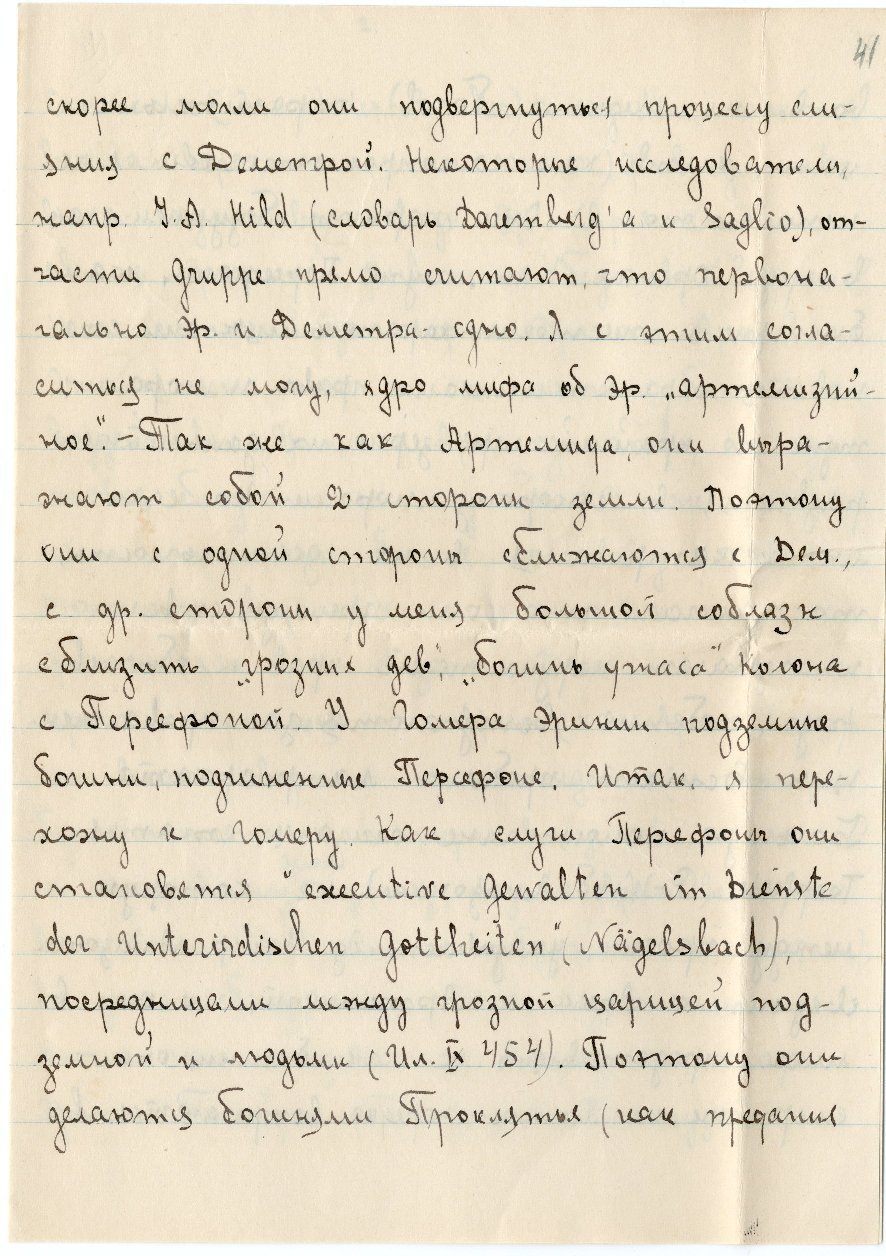 41
скорее могли они подвергнуться процессу сли-
яния с Деметрой. Некоторые исследователи,
напр. J.A. Hild (словарь Daremberg'a и Saglio), от-
части Gruppe прямо считают, что первона-
чально Эр. и Деметра - одно. Я с этим согла-
ситься не могу, ядро мифа об Эр. „артемизий-
ное“. – Так же как Артемида, они выра-
жают собой 2 стороны земли. Поэтому
они с одной стороны сближаются с Дем.,
с др. стороны у меня большой соблазн
сблизить „грозных дев“, „богинь ужаса“ Колона
с Персефоной. У Гомера Эринии подземные
богини, подчиненные Персефоне. Итак, я пере-
хожу к Гомеру. Как слуги Персефоны они
становятся "executive Gewalten im Dienste
der Unterirdischen Gottheiten" (Nägelsbach),
посредницами между грозной царицей под-
земной и людьми (Ил. IX 454). Поэтому они
делаются богинями Проклятья (как предания